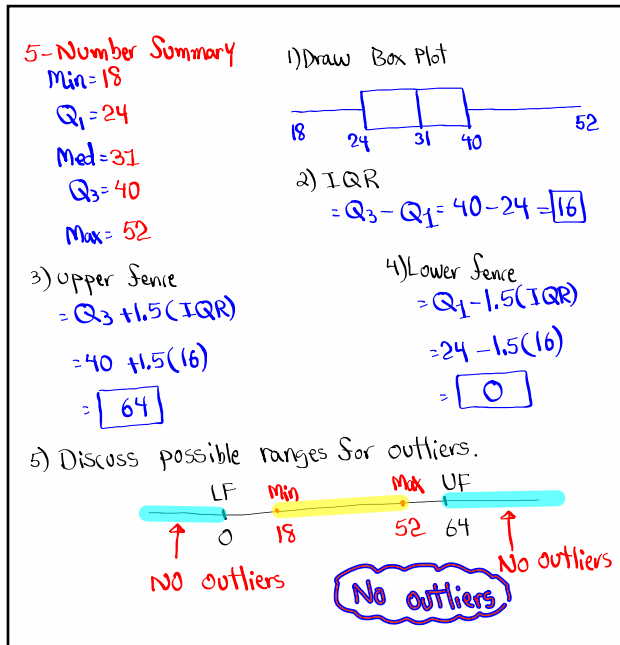 5-Number Summary
Min=18
Q1=24
Med=31
Q3=40
Max=52
1) Draw Box Plot
18 24 31 40 52
2) IQR
=Q3-Q1=40-24=16
3) Upper fence
=Q3+1.5(IQR)
=40+1.5(16)
=64
4) Lower fence
=Q1-1.5(IQR)
=24-1.5(16)
=0
5) Discuss possible ranges for outliers.
LF Min Max UF
0 18 52 64
NO outliers
No outliers
No outliers